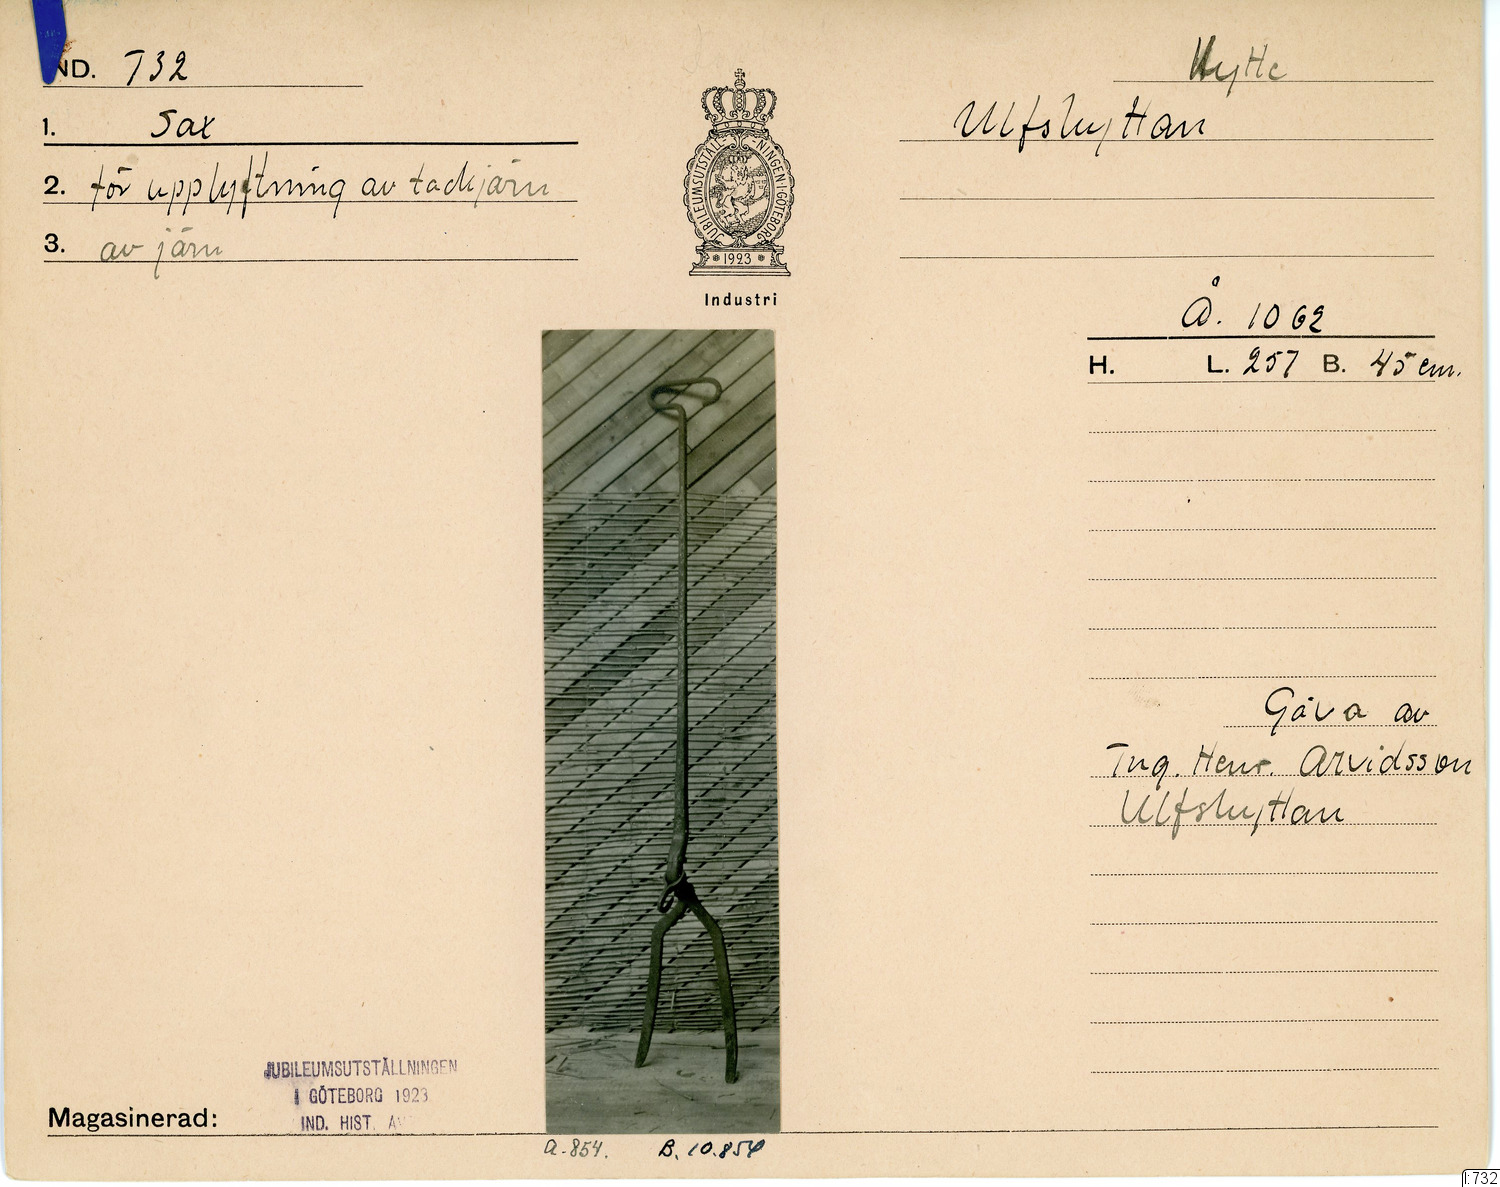 IND. 732
1. Sax
2. för upplyftning av tackjärn
3. av järn
JUBILEUMSUTSTÄLLNINGEN I GÖTEBORG
1923
Industri
Hytte
Ulfshyttan
Å. 1062
H. L. 257 B. 45 cm.
Gåva av
Ing. Henr. Arvidsson
Ulfshyttan
JUBILEUMSUTSTÄLLNINGEN
I GÖTEBORG 1923
IND. HIST. A
Magasinerad:
A.854. B.10.854
I:732